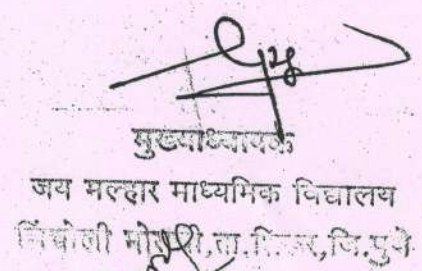 मुख्याध्यापक
जय मल्हार माध्यमिक विद्यालय
ता. जि.पुणे